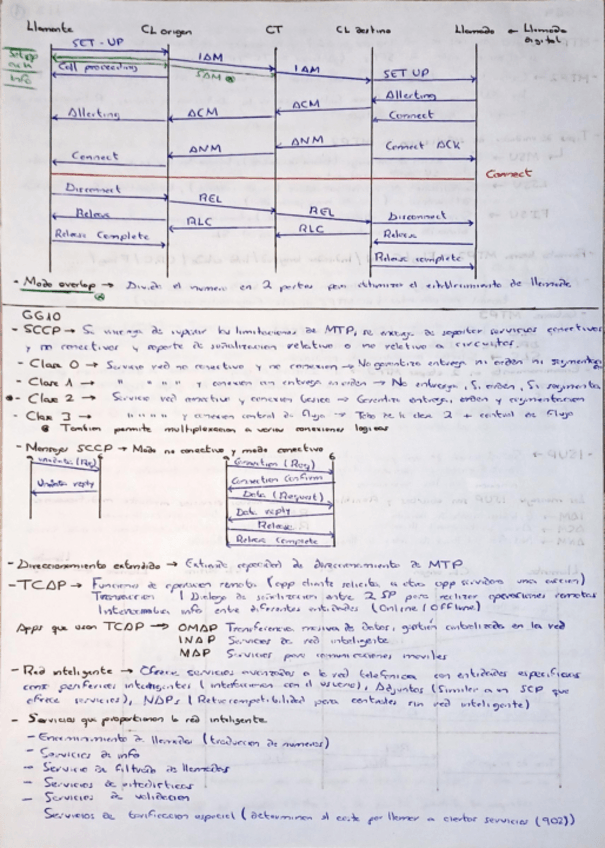 Llamante CL origen CT CL destino Llamado ← Llamada digital
SET-UP
IAM
Call proceeding
SAM
Info
IAM
SET UP
Allerting
Connect
Allerting
ACM
ACM
Connect
ANM
ANM
Connect ACK
Connect
Disconnect
REL
REL
Disconnect
Release
RLC
RLC
Release
Release Complete
Release complete
- Modo overlap → Divide el numero en 2 partes para el establecimiento de llamada
GG10
- SCCP → Se encarga de las limitaciones de MTP, se encarga de soportar servicios conectivos
y no conectivos y soporte de señalizacion relativo o no relativo a circuitos.
- Clase 0 → Servicio red no conectivo y no conexion → No garantiza entrega ni orden ni segmenta
- Clase 1 → " " " y conexion en orden → No entrega, Si orden, Si segmenta
- Clase 2 → Servicio red conectivo y conexion basica → Garantiza entrega, orden y segmentacion
- Clase 3 → " " " " y conexion control de flujo → Todo de la clase 2 + control de flujo
Tambien permite multiplexacion a varias conexiones logicas
- Mensajes SCCP → Modo no conectivo y modo conectivo
Unidata (Req)
Connection (Req)
Unidata reply
Connection Confirm
Data (Request)
Data reply
Release
Release complete
- Direccionamiento extendido → Extiende capacidad de direccionamiento de MTP
- TCAP → Funciones de operacion remota (app cliente solicita a otra app servidora una accion)
Transaccion (Dialogo de señalizacion entre 2 SP para realizar operaciones remotas
Intercambia info entre diferentes entidades (Online / Offline)
Apps que usan TCAP → OMAP Transferencia masiva de datos, gestión centralizada en la red
INAP Servicios de red inteligente
MAP Servicios para comunicaciones moviles
- Red inteligente → Ofrece servicios avanzados a la red telefonica con entidades especificas
como perifericos inteligentes (interaccionan con el usuario), Adjuntos (Similar a un SCP que
ofrece servicios), NAPs (Retrocompatibilidad para centrales sin red inteligente)
- Servicios que proporciona la red inteligente
- Encaminamiento de llamadas (traduccion de numeros)
- Servicios de info
- Servicio de filtrado de llamadas
- Servicios de estadisticas
- Servicios de validacion
Servicios de tarificacion especial (determinan el coste por llamar a ciertos servicios (902))